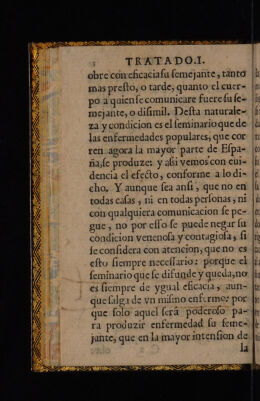 TRATADO.I.
obre con eficacia su semejante, tanto
mas presto, o tarde, quanto el cuer-
po a quien se comunicare fuere su se-
mejante, o disimil. Desta naturale-
za y condicion es el seminario que de
las enfermedades populares, que cor
ren agora la mayor parte de Espa-
ña, se produze: y assi vemos con eui-
dencia el efecto, conforme a lo di-
cho. Y aunque sea ansi, que no en
todas casas, ni en todas personas, ni
con qualquiera comunicacion se pe-
gue, no por esso se puede negar su
condicion venenosa y contagiosa, si
se considera con atencion, que no es
esto siempre necessario: porque el
seminario que se difunde y queda, no
es siempre de ygual eficacia, aun-
que salga de vn mismo enfermo: por
que solo aquel será poderoso pa-
ra produzir enfermedad su seme-
jante, que en la mayor intension de
la